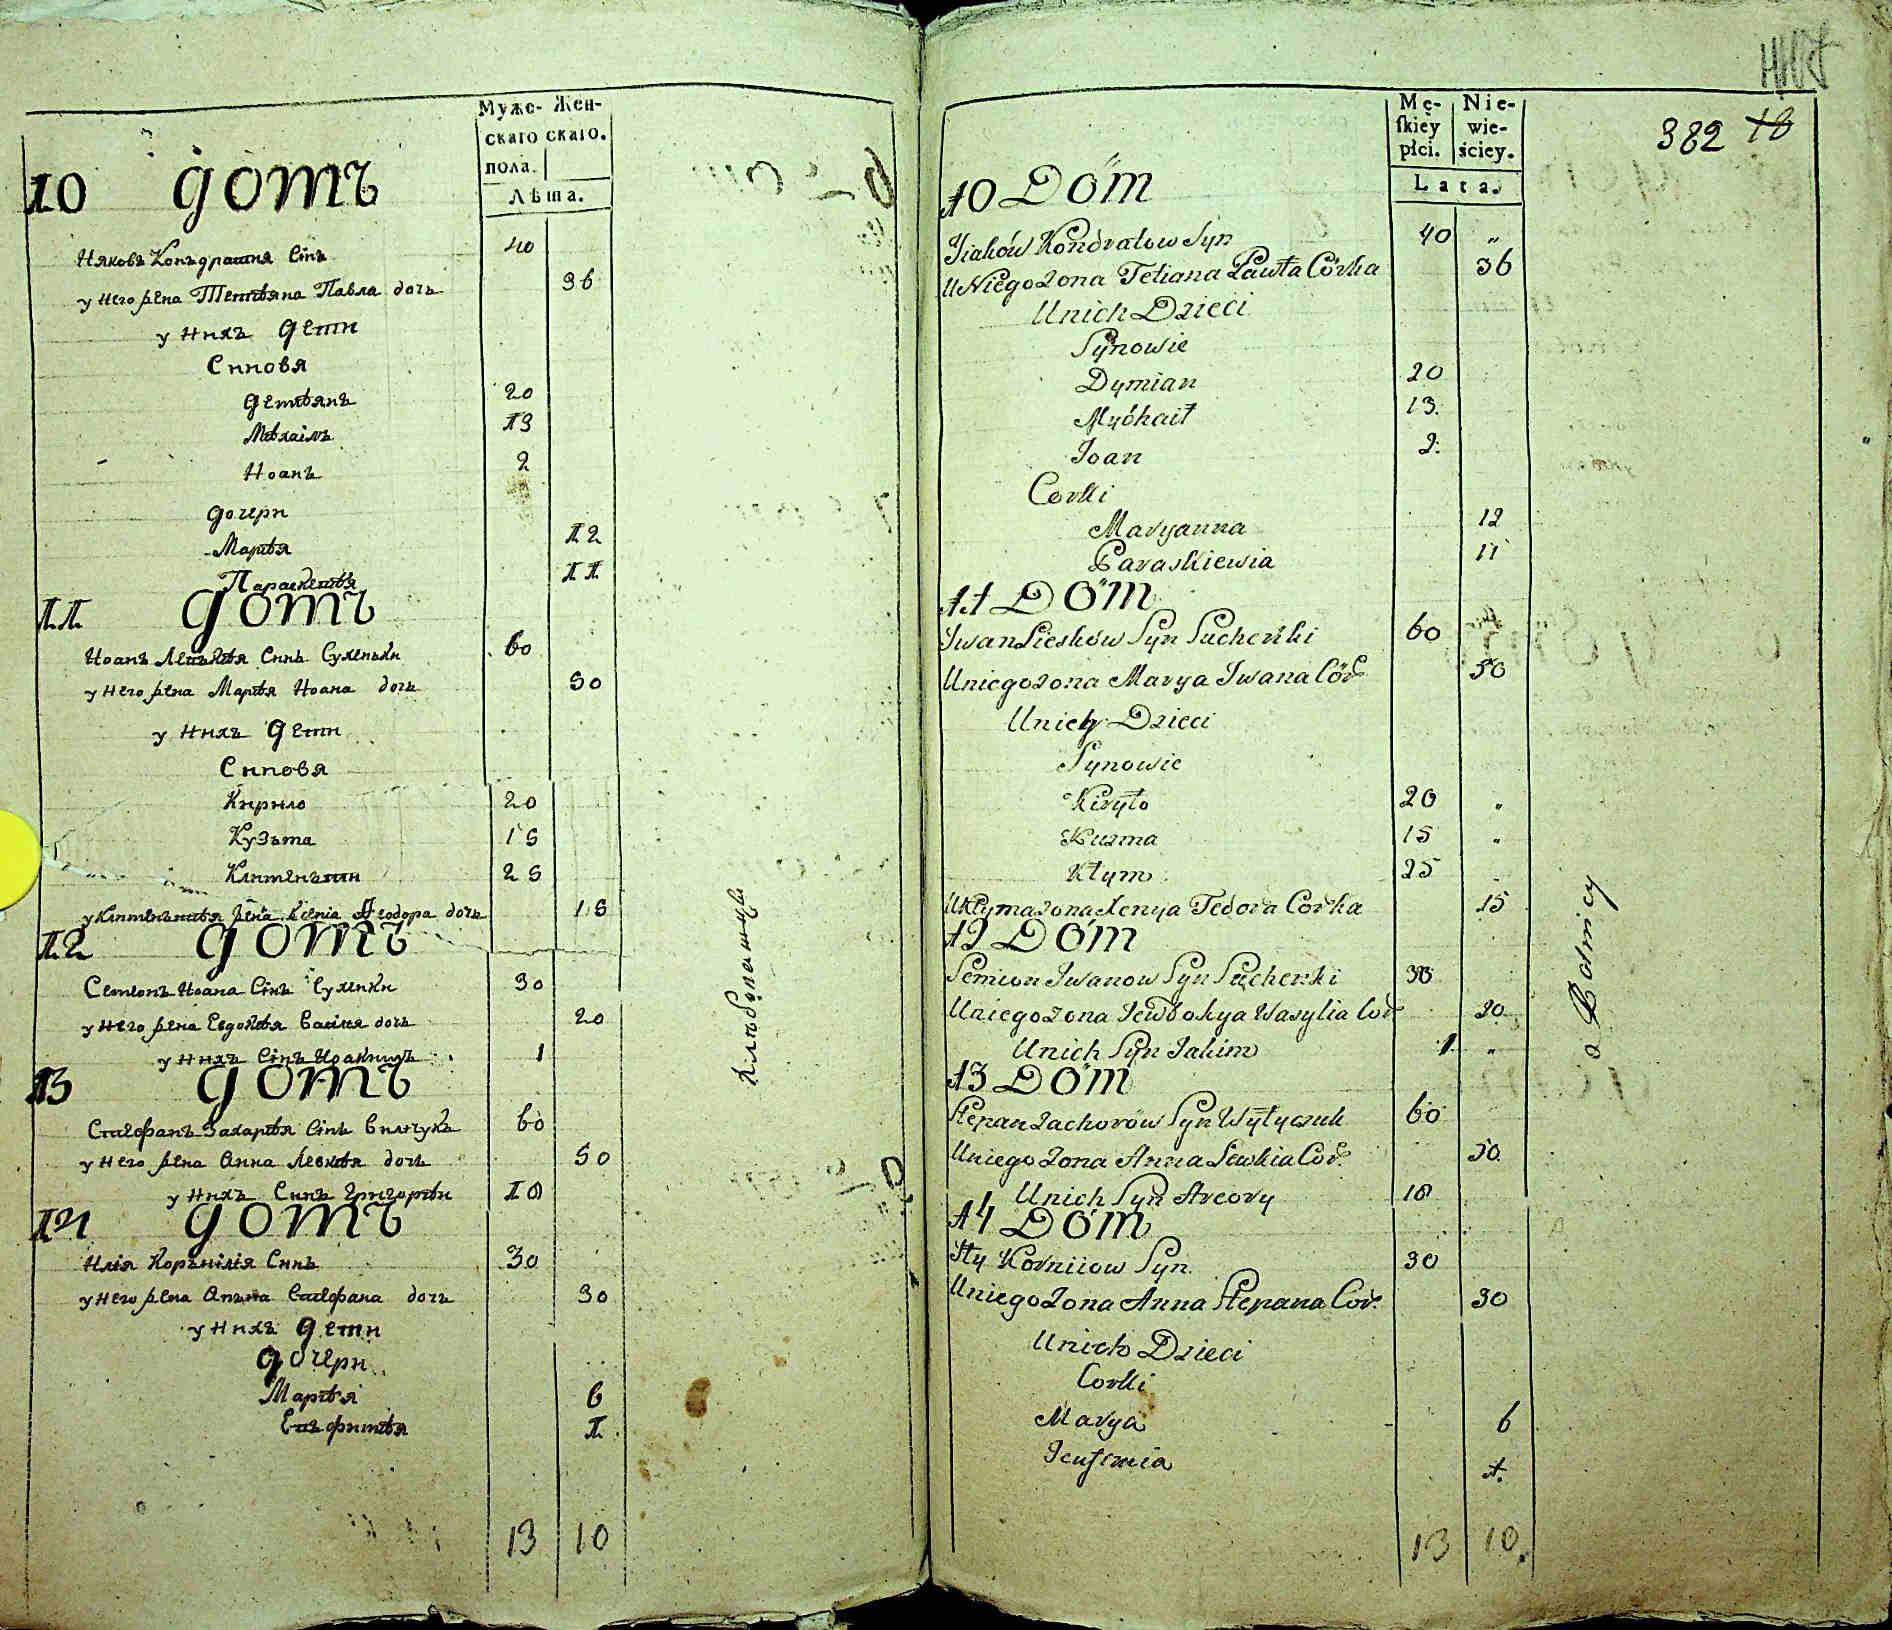 Муже- Жен-
скаго скаго.
пола.
Лѣта.
10 домъ
Ияковъ Конъдратия Синъ 40
у него жена Тетѣяна Павла дочъ 36
у нихъ дети
Синовя
Демѣянъ 20
Михаілъ 13
Иоанъ 2
дочери
Марѣя 12
Параскевѣя 11
11 домъ
Иоанъ Синъ Сухенъки 60
у него жена Марѣя Иоана дочъ 50
у нихъ дети
Синовя
Кирило 20
Кузъма 15
Климентии 25
жена Ксенія Ѳеодора дочъ 15
12 домъ
Семионъ Иоана Синъ Сухенки 30
у него жена Евдокѣя Василя дочъ 20
у нихъ Синъ Иоакимъ 1
13 домъ
Стефанъ Захарѣя Синъ Вилчукъ 60
у него жена Анна Левкѣя дочъ 50
у нихъ Синъ Григорѣи 18
14 домъ
Илія Коръніліа Синъ 30
у него жена Анъна Стефана дочъ 30
у нихъ дети
дочери
Марѣя 6
Еѵъфимѣя 1
13 10
382 18
Mę- Nie-
skiey wie-
płci. ściey.
Lata.
10 Dóm
Jiaków Kondratow Syn 40 "
U Niego Zona Tetiana Pawła Córka 36
Unich Dzieci
Synowie
Dymian 20
Myóhaił 13.
Joan 2.
Corki
Maryanna 12
Paraskiewia 11
11 Dóm
Jwan Lieśków Syn Sucheńki 60
Uniego zona Marya Jwana Cór. 50
Unich Dzieci
Synowie
Kiryło 20 "
Kuzma 15 "
Kłym 25
U Kłyma zona Xenya Fedora Corka 15
12 Dóm
Semion Jwanow Syn Suchenki 30
Uniego zona Jewdokya Wasylia Cor. 20
Unich Syn Jakim 1 "
13 Dóm
Stepan Zachorów Syn Wyłyczuk 60
Uniego Zona Anna Lewkia Cor. 50
Unich Syn Hreory 18
14 Dóm
Jły Korniiow Syn 30
Uniego Zona Anna Stepana Cor. 30
Unich Dzieci
Corki
Marya 6
Jeufemia 1.
13 10.